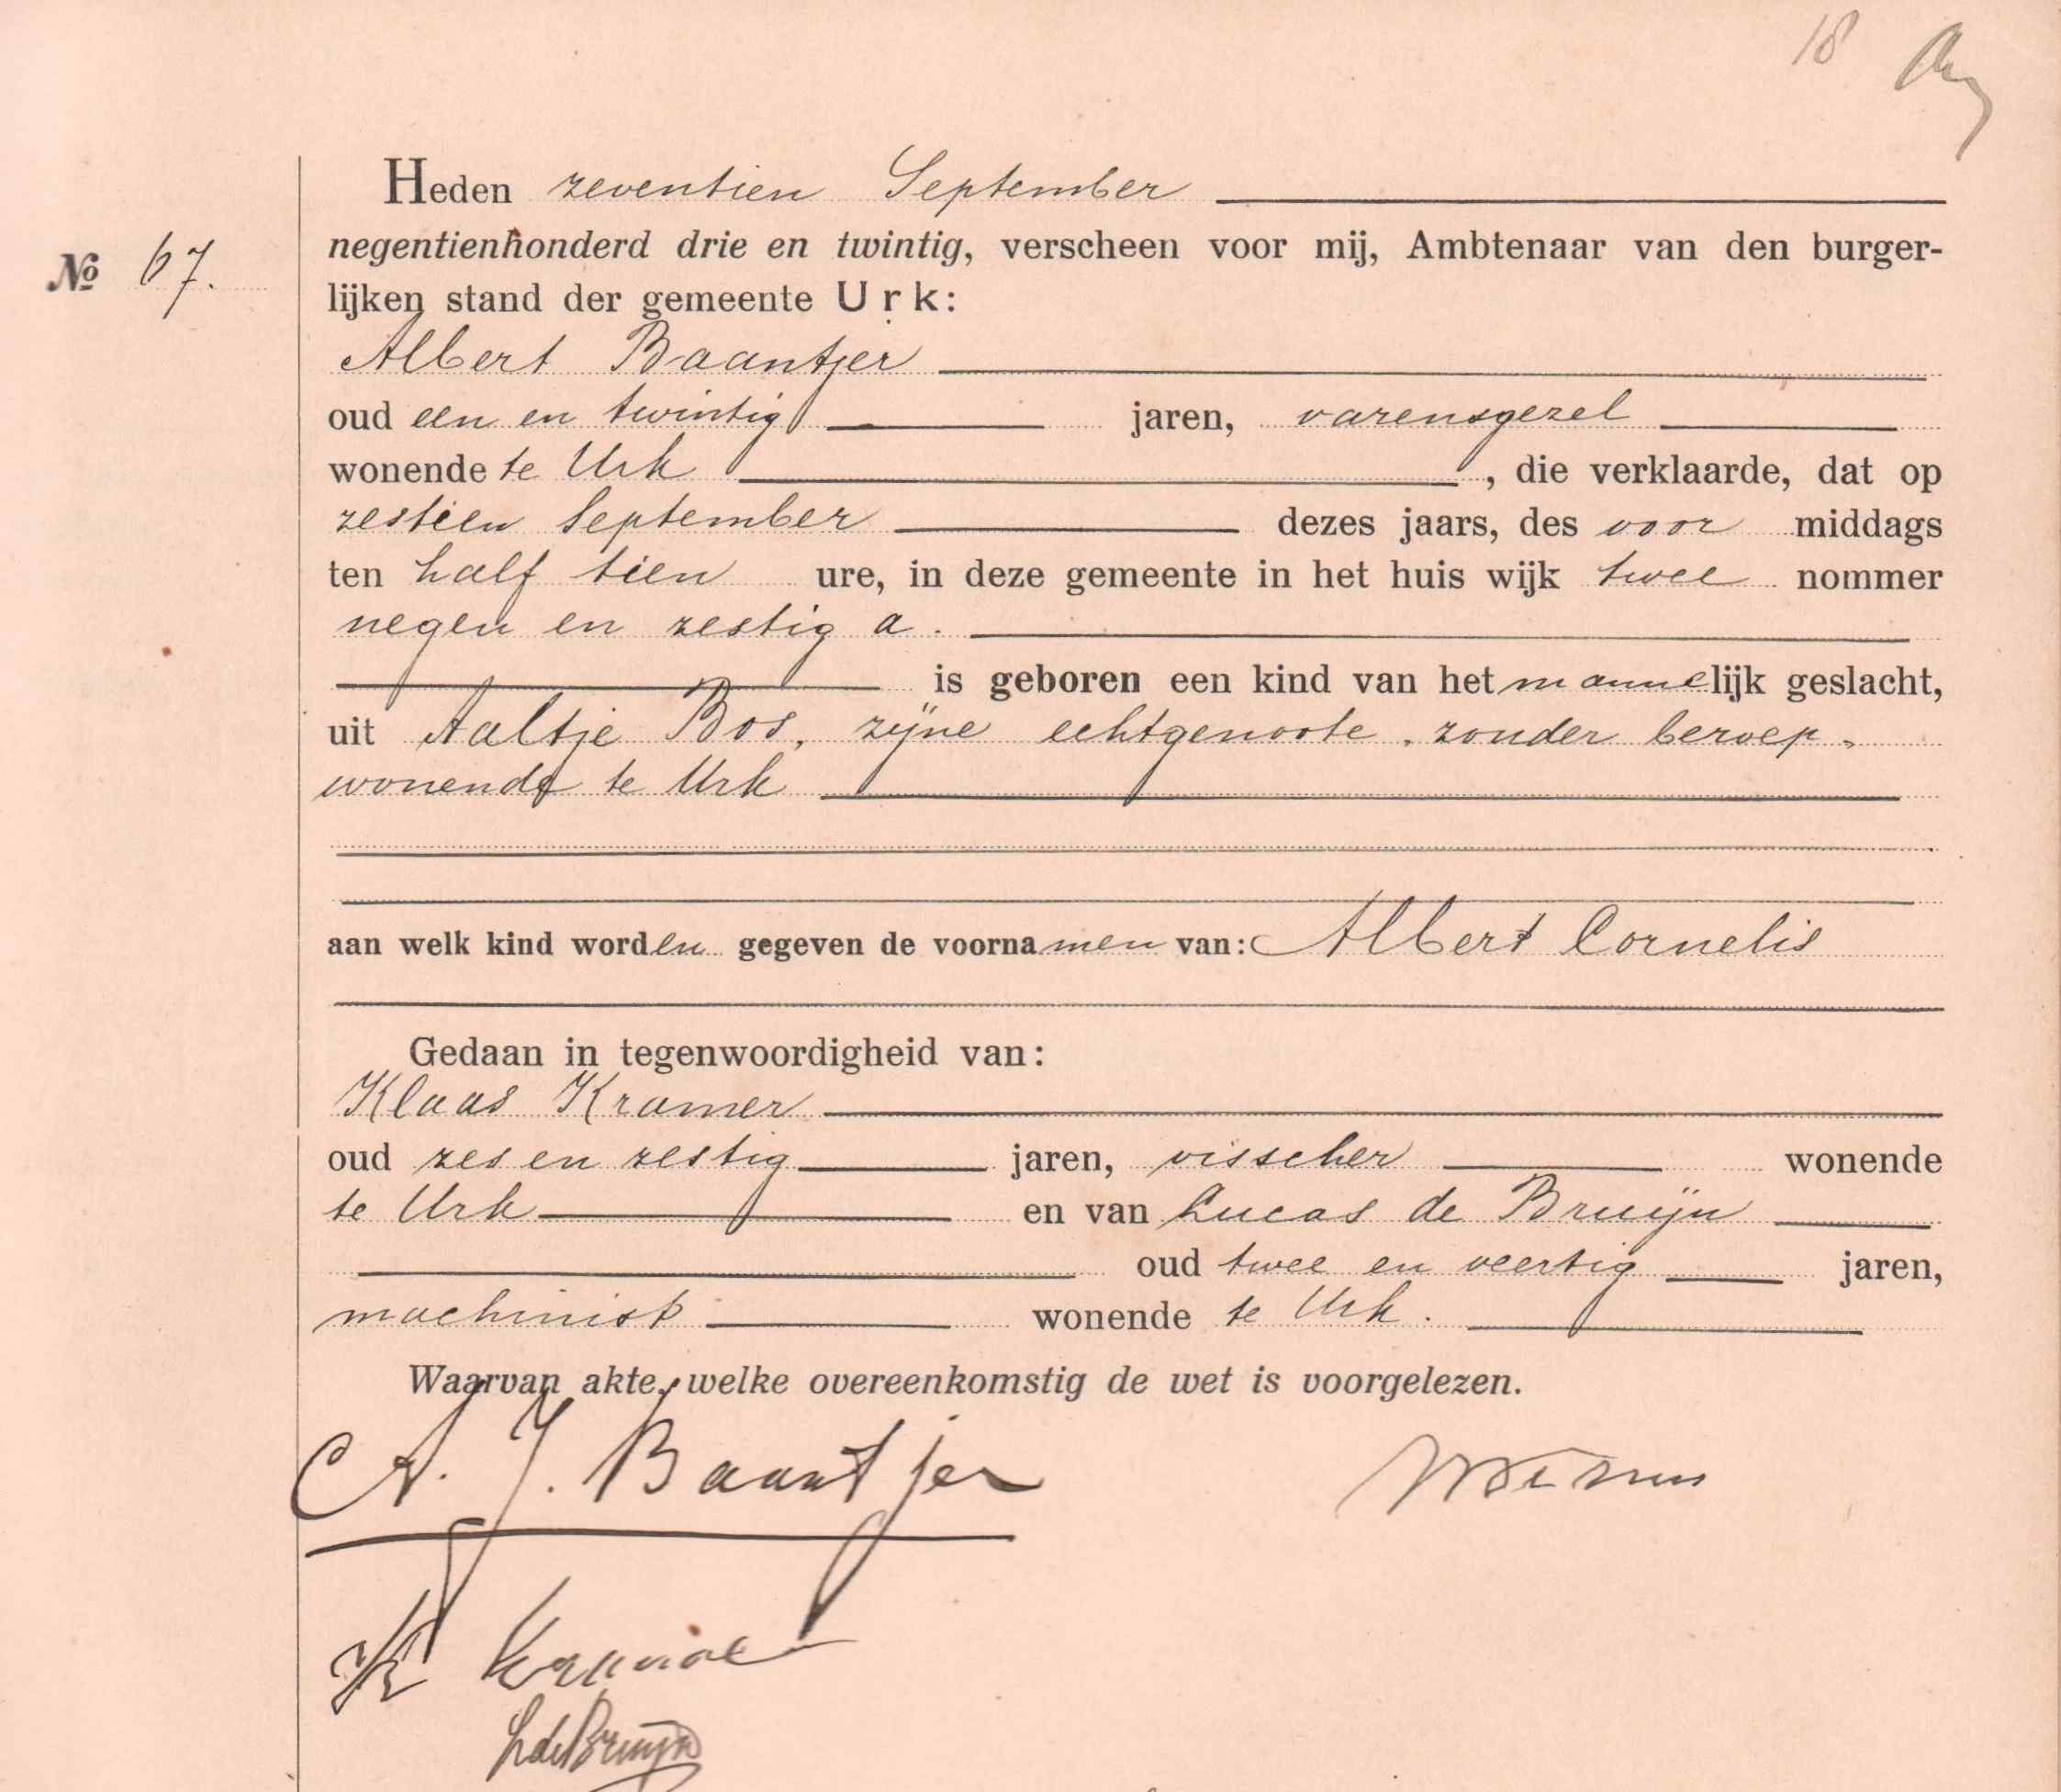 18
Heden zeventien September
negentienhonderd drie en twintig, verscheen voor mij, Ambtenaar van den burger-
№ 67.
lijken stand der gemeente Urk:
Albert Baantjer
oud een en twintig jaren, varensgezel
wonende te Urk, die verklaarde, dat op
zestien September dezes jaars, des voor middags
ten half tien ure, in deze gemeente in het huis wijk twee nommer
negen en zestig a.
is geboren een kind van het mannelijk geslacht,
uit Aaltje Bos, zijne echtgenoote, zonder beroep,
wonende te Urk
aan welk kind worden gegeven de voornamen van: Albert Cornelis
Gedaan in tegenwoordigheid van:
Klaas Kramer
oud zes en zestig jaren, visscher wonende
te Urk en van Lucas de Bruijn
oud twee en veertig jaren,
machinist wonende te Urk.
Waarvan akte, welke overeenkomstig de wet is voorgelezen.
A. J. Baantjer
K Kramer
L de Bruijn